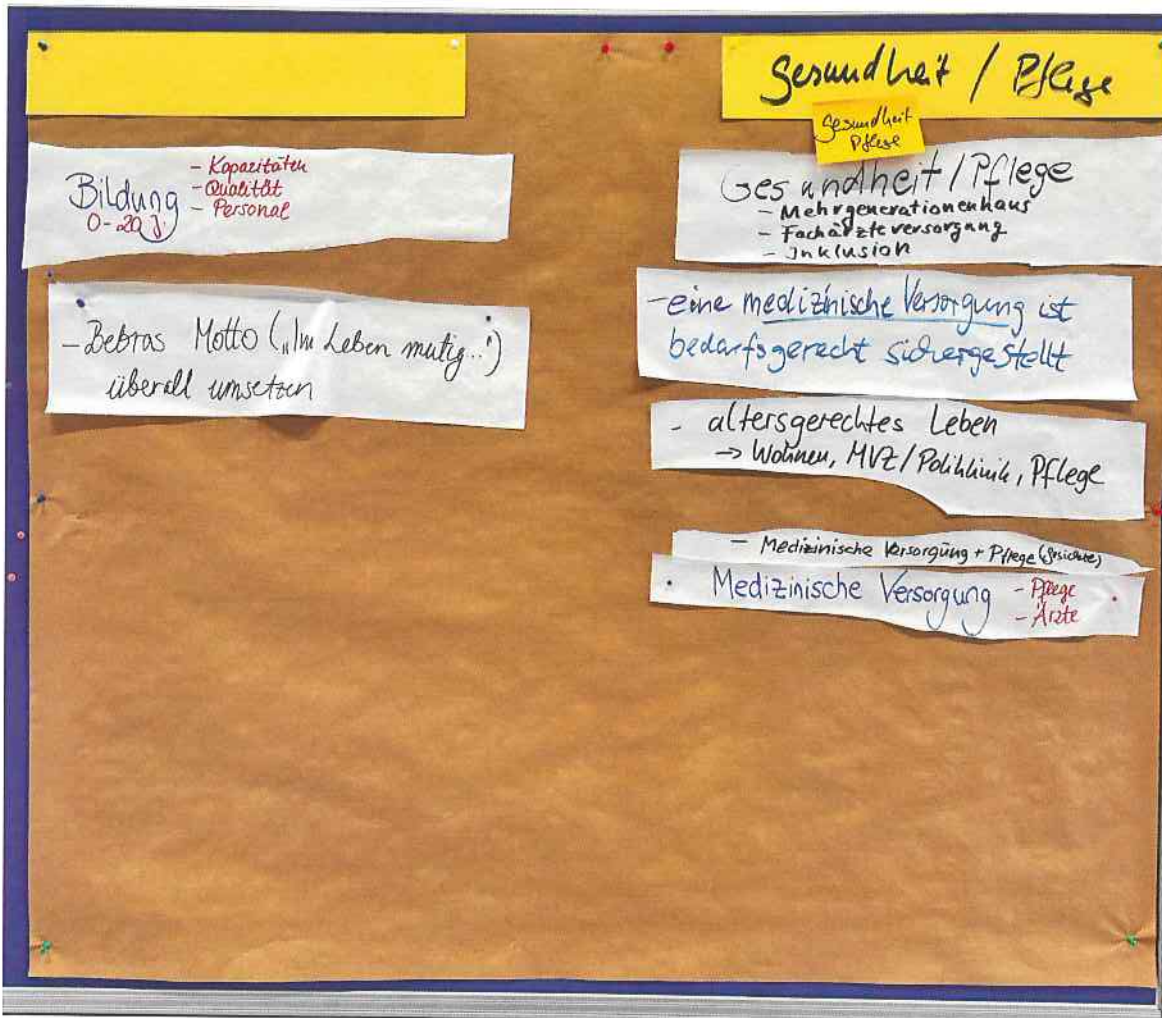 Bildung
0-20 J.
- Kapazitäten
- Qualität
- Personal
- Bebras Motto („Im Leben mutig..")
überall umsetzen
Gesundheit / Pflege
Gesundheit
Pflege
Gesundheit / Pflege
- Mehrgenerationenhaus
- Fachärzteversorgung
- Inklusion
- eine medizinische Versorgung ist
bedarfsgerecht sichergestellt
- altersgerechtes Leben
→ Wohnen, MVZ / Poliklinik, Pflege
- Medizinische Versorgung + Pflege
Medizinische Versorgung
- Pflege
- Ärzte